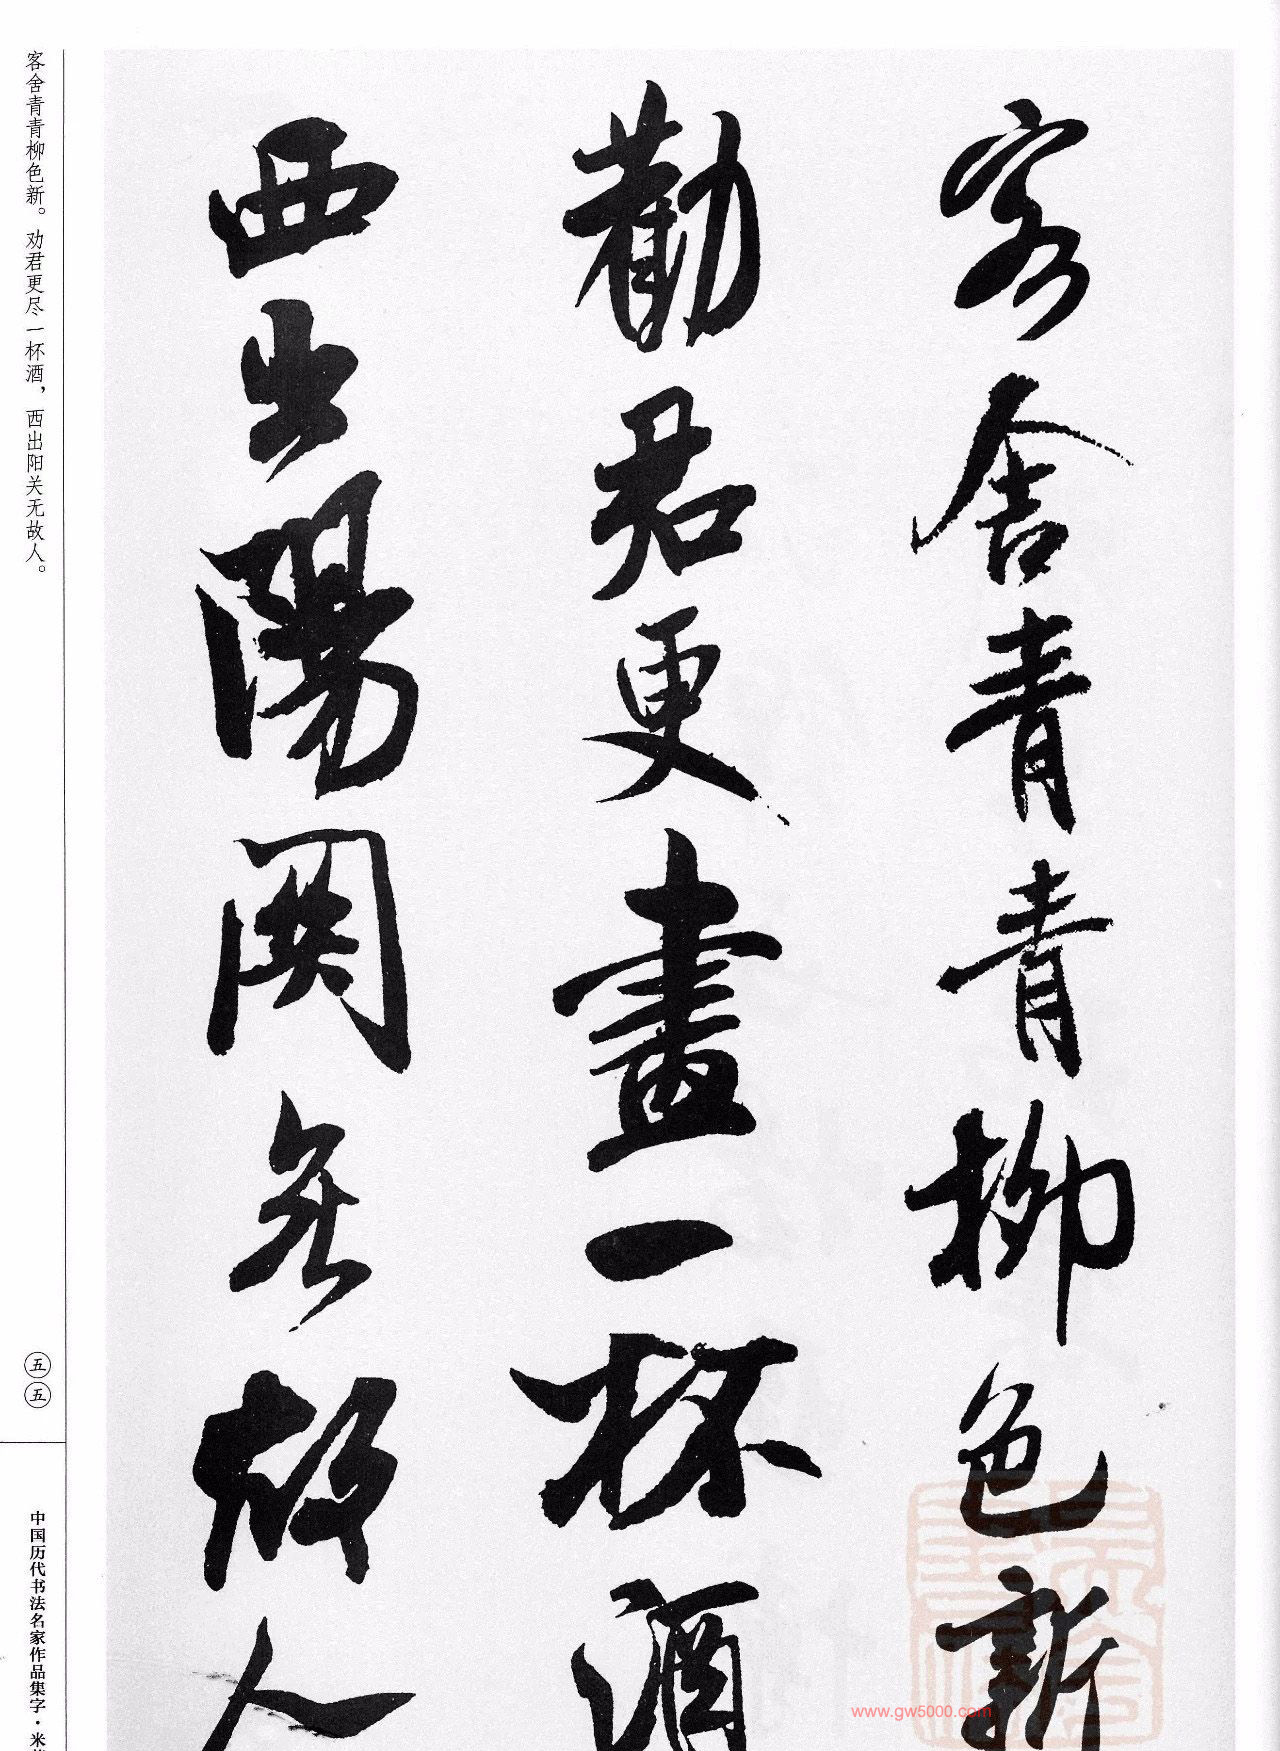 客舍青青柳色新
勸君更盡一杯酒
西出陽關無故人
客舍青青柳色新。劝君更尽一杯酒，西出阳关无故人。
五五
中国历代书法名家作品集字·米
www.gw5000.com